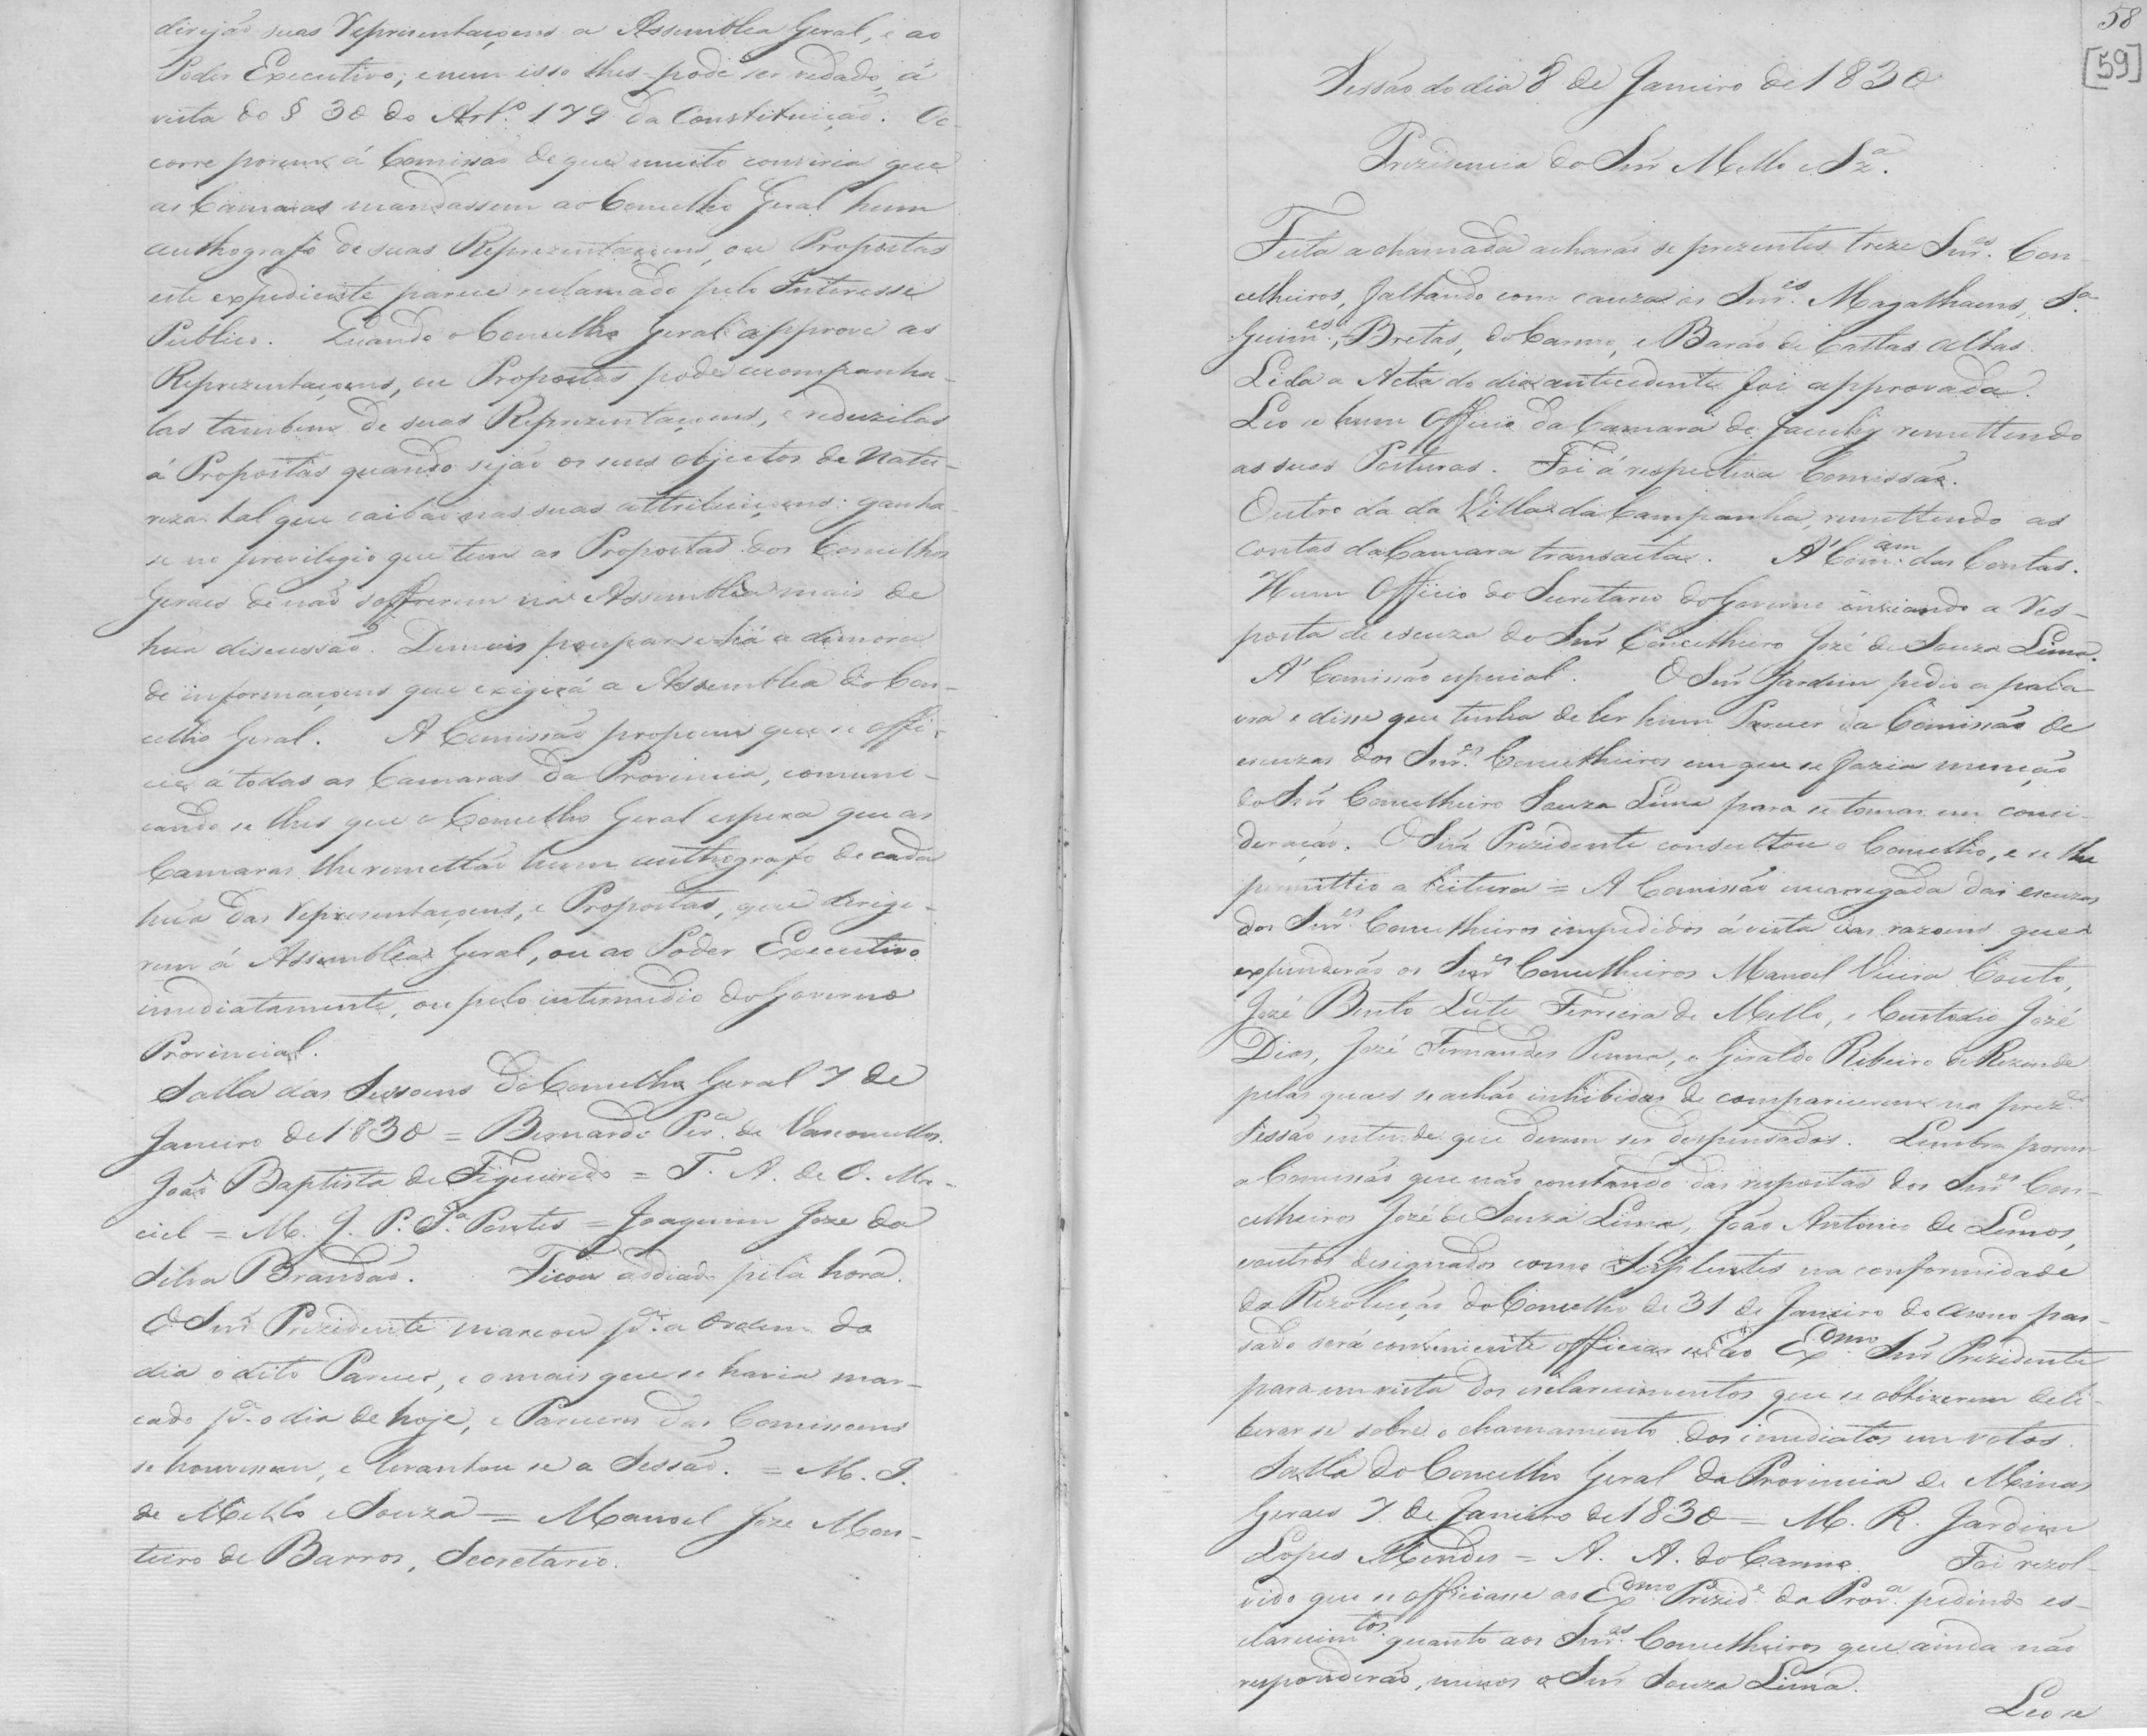 dirijão suas Representaçoens a Assemblea Geral, e ao
Poder Executivo; e nem isso lhes pode ser vedado á
vista do § 30 do Art.º 179 da Constituição. Oc-
corre porem á Comissão de que muito conviria que
as Camaras mandassem ao Concelho Geral hum
authografo de suas Reprezentaçoens, ou Propostas
este expediente parece reclamado pelo Interesse
Publico. Quando o Concelho Geral approve as
Reprezentaçoens, ou Propostas pode acompanha-
las tambem de suas Reprezentaçoens, e reduzilas
á Propostas quando sejão os seus objectos de Natu-
reza tal que caibão nas suas attribuiçoens: ganha-
se no previlegio que tem as Propostas dos Concelhos
Geraes de não soffrerem na Assemblea mais de
hũa discussão. Demais poupar se há a demora
de informaçoens que exigirá a Assemblea do Con-
celho Geral. A Comissão propoem que se offi-
cie á todas as Camaras da Provincia, comuni-
cando se lhes que o Concelho Geral espera que as
Camaras lhe remettão hum authografo de cada
hũa das Representaçoens, e Propostas, que dirigi-
rem á Assemblea Geral, ou ao Poder Executivo
imediatamente, ou pelo intermedio do Governo
Provincial.
Salla das Sessoens do Concelho Geral 7 de
Janeiro de 1830 = Bernardo Per.ª de Vasconcellos.
João Baptista de Figueiredo = T. A. de O. Ma-
ciel = M. J. P. S.ª Pontes = Joaquim Joze da
Silva Brandão. Ficou addiado pela hora.
O Snr Prezidente marcou p.ª a Ordem do
dia o dito Parecer, e o mais que se havia mar-
cado p.ª o dia de hoje, e Pareceres das Comissoens
se houvessem, e levantou se a Sessão. = M. I.
de Mello e Souza = Manoel Joze Mon-
teiro de Barros, Secretario.
58
[59]
Sessão do dia 8 de Janeiro de 1830
Prezidencia do Snr Mello e Sz.ª
Feita a chamada acharão se prezentes treze Snr.es Con-
celheiros, faltando com cauza os Snr.es Magalhaens, S.ª
Guim.es, Bretas, do Carmo, e Barão de Cattas Altas.
Lida a Acta do dia antecedente foi approvada.
Leo se hum Officio da Camara de Jacuhy remettendo
as suas Posturas. Foi á respectiva Comissão.
Outro da da Villa da Campanha, remettendo as
contas da Camara transacta. A' Com.am das Contas.
Hum Officio do Secretario do Governo enviando a Res-
posta de escuza do Snr Concelheiro Jozé de Souza Lima.
A' Comissão especial. O Snr Jardim pedio a pala-
vra e disse que tinha de ler hum Parecer da Comissão de
escuzas dos Snr.es Concelheiros em que se fazia menção
do Snr Concelheiro Souza Lima para se tomar em consi-
deração. O Snr Prezidente consultou o Concelho, e se lhe
permittio a leitura = A Comissão encarregada das escuzas
dos Snr.es Concelheiros impedidos á vista das razoens que
expenderão os Snr.es Concelheiros Manoel Vieira Couto,
Jozé Bento Leite Ferreira de Mello, e Custodio Jozé
Dias, Jozé Fernandes Penna, e Giraldo Ribeiro de Rezende
pelas quaes se achão inhibidos de comparecerem na prez.e
Sessão entende que devem ser despensados. Lembra porem
a Comissão que não constando das respostas dos Snr.es Con-
celheiros Jozé de Souza Lima, João Antonio de Lemos,
e outros designados como Suplentes na conformidade
da Rezolução do Concelho de 31 de Janeiro do anno pas-
sado será conveniente officiar se ao Exmo Snr Prezidente
para em vista dos esclarecimentos que se obtiverem deli-
berar se sobre o chamamento dos imediatos em votos.
Salla do Concelho Geral da Provincia de Minas
Geraes 7 de Janeiro de 1830 = M. R. Jardim
Lopes Mendes = A. A. do Carmo. Foi rezol-
vido que se officiasse ao Exmo Prezid.e da Prov.ª pedindo es-
clarecim.tos quanto aos Snr.es Concelheiros que ainda não
responderão, menos o Snr Souza Lima.
Leo se